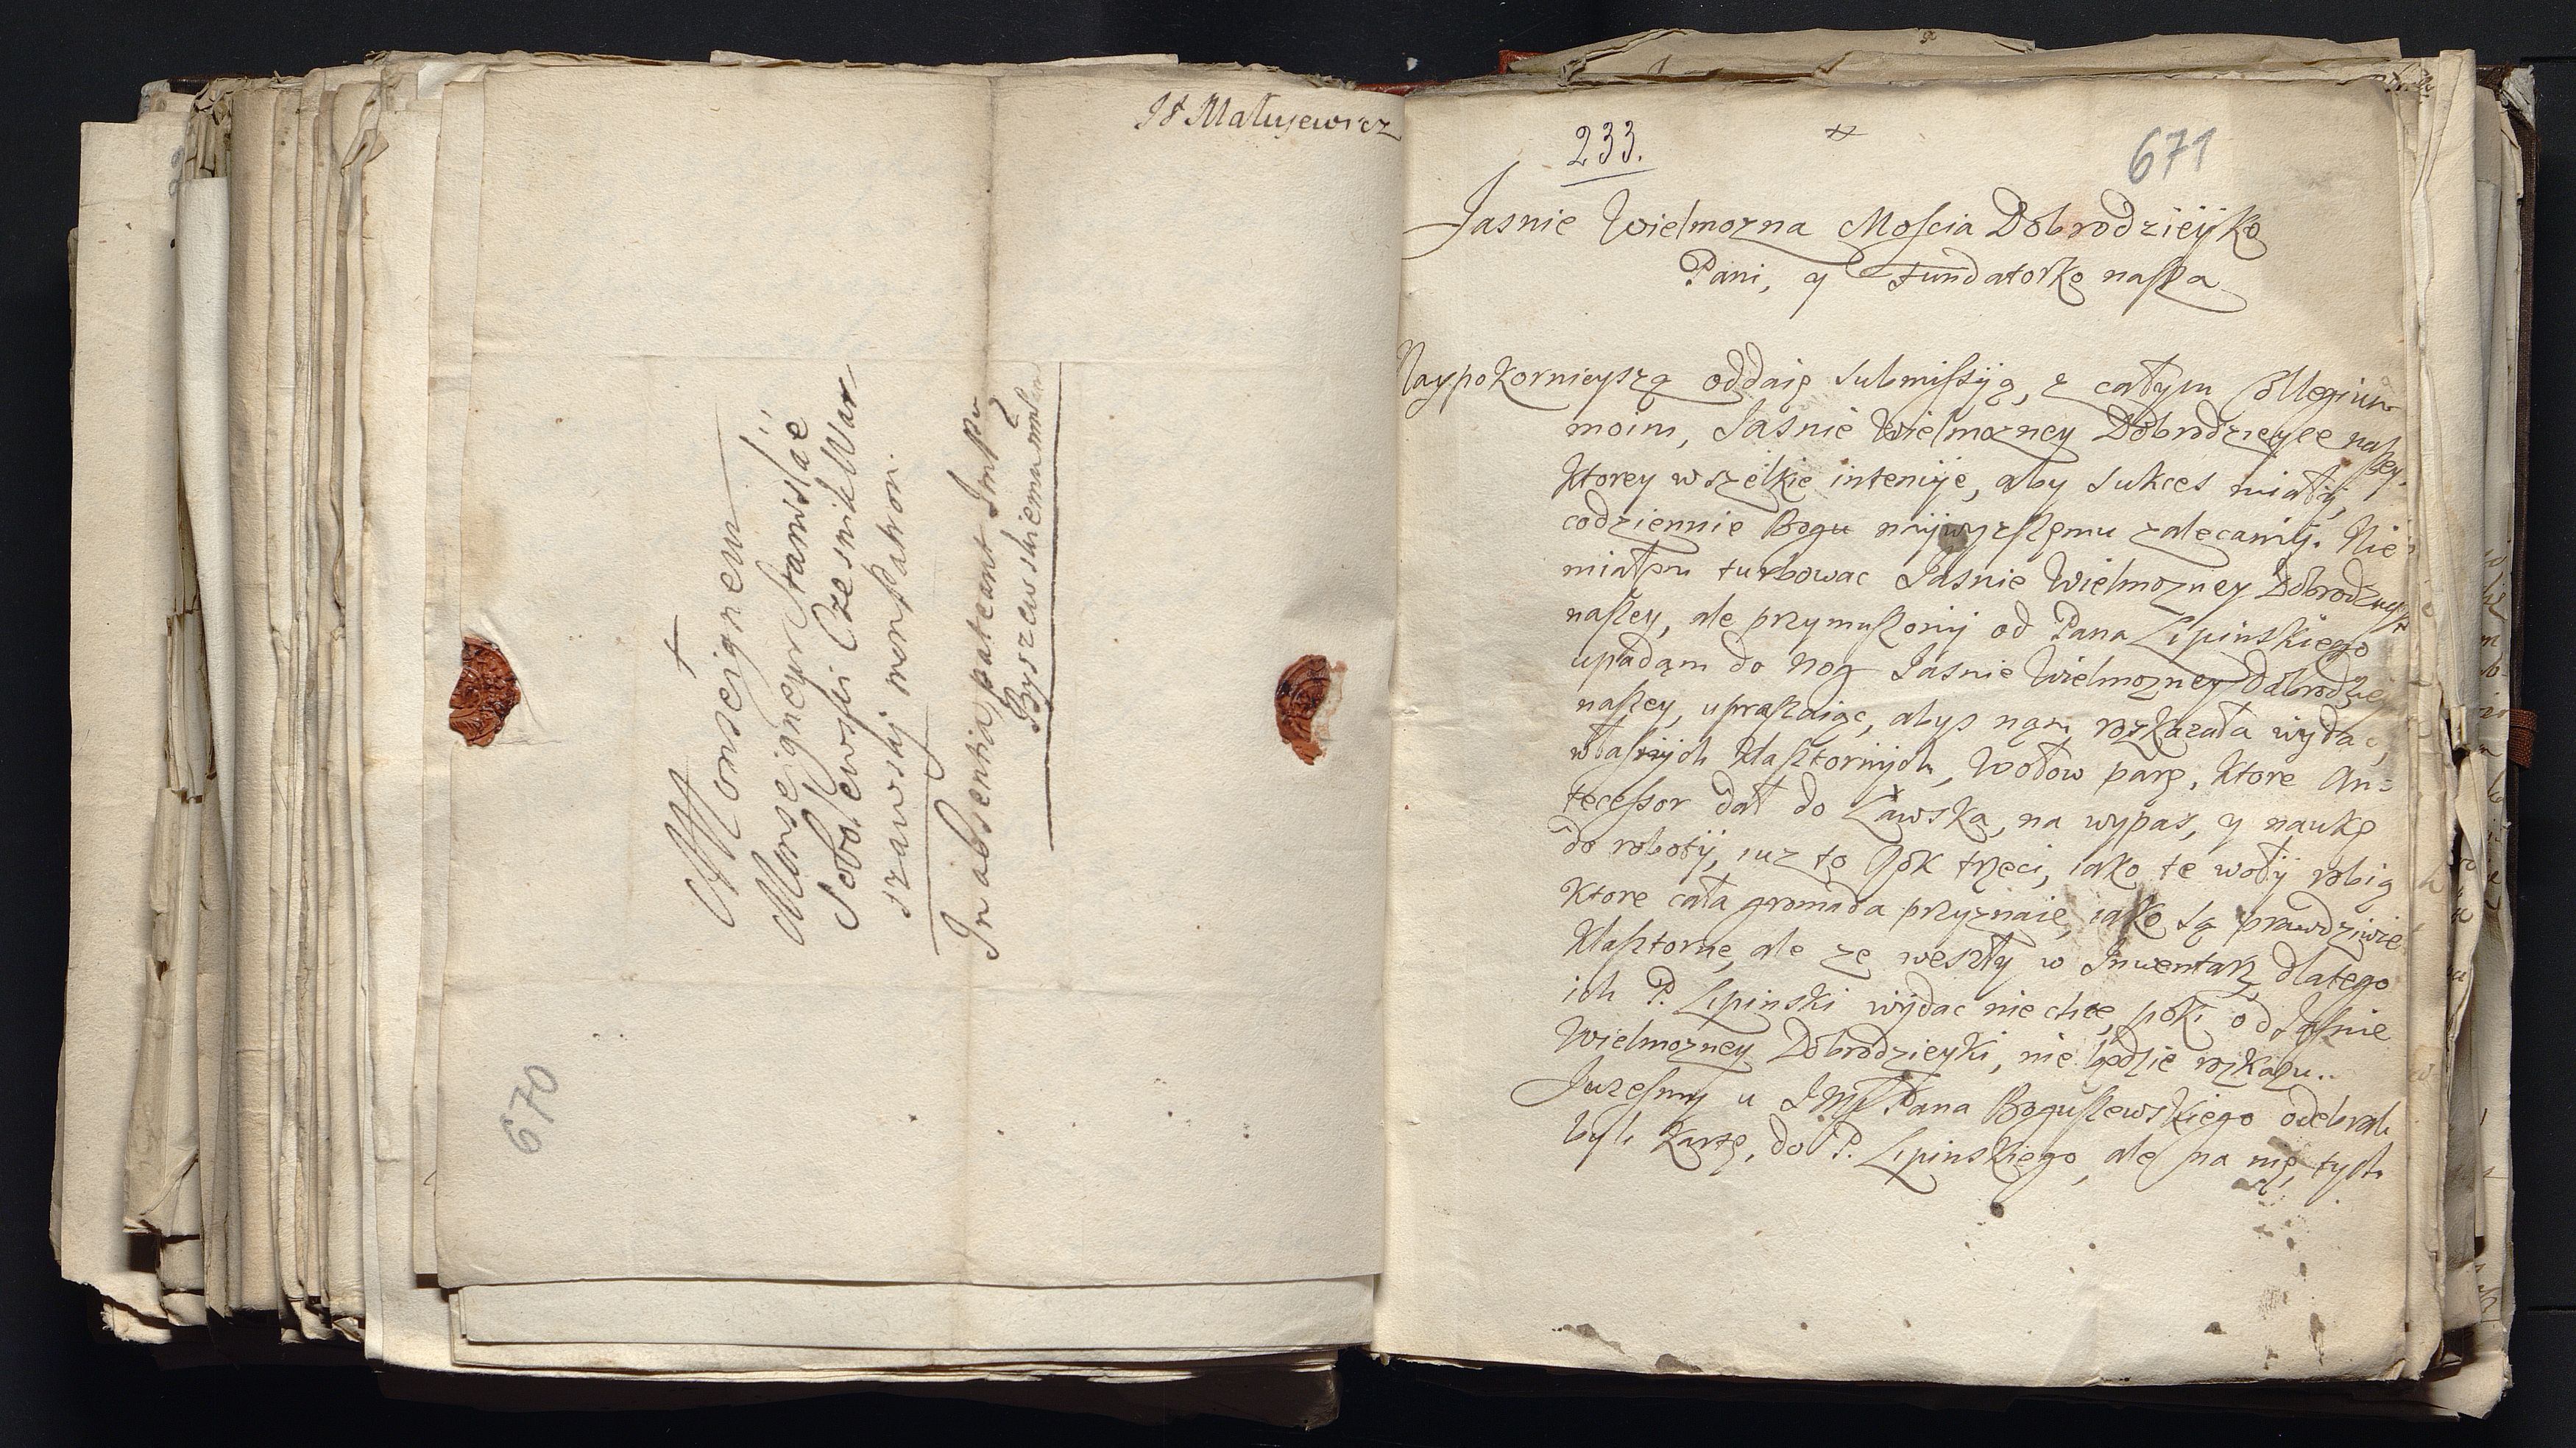 Jd Matujewicz
†
A Monseigneur
Monseigneur Stanislaé
Sobolewski Czesnik War,
szawskij mon Patron.
In absentia pateant Jmp̄u
Byszewskiemu
670
233.
671
Jasnie Wielmozna Mościa Dobrodzieyko
Pani, y Fundatorko nasza
Naypokornieyszą oddaię submissyią, z całym Collegium
moim, Jasnie Wielmozney Dobrodzieyce naszey,
Ktorey wszelkie intencyie, aby sukces miały,
codziennie Bogu naywyzszemu zalecamy. Nie
miałem turbowac Jasnie Wielmozney Dobrodzieyki
naszey, ale przymuszony od Pana Lipinskiego
upadam do nog Jasnie Wielmozney Dobrodziey
naszey, upraszaiąc, abys nąm rozkazała wydac,
własnych Klasztornych, Wołow parę, Ktore An=
tecessor dał do Ławska, na wypas, y naukę
do roboty, iuz to Rok trzeci, iako te woły robią
Ktore cała gromada przyznaie, iako są prawdziwie
Klasztorne, ale ze weszły w Inwentarz, dlatego
ich P. Lipinski wydac niechce, poki od Jasnie
Wielmozney Dobrodzieyki, nie będzie rozkazu..
Juzesmy u JMP Pana Boguszewskiego odebrali
byli Kartę, do P. Lipinskiego, ale na nię, tych